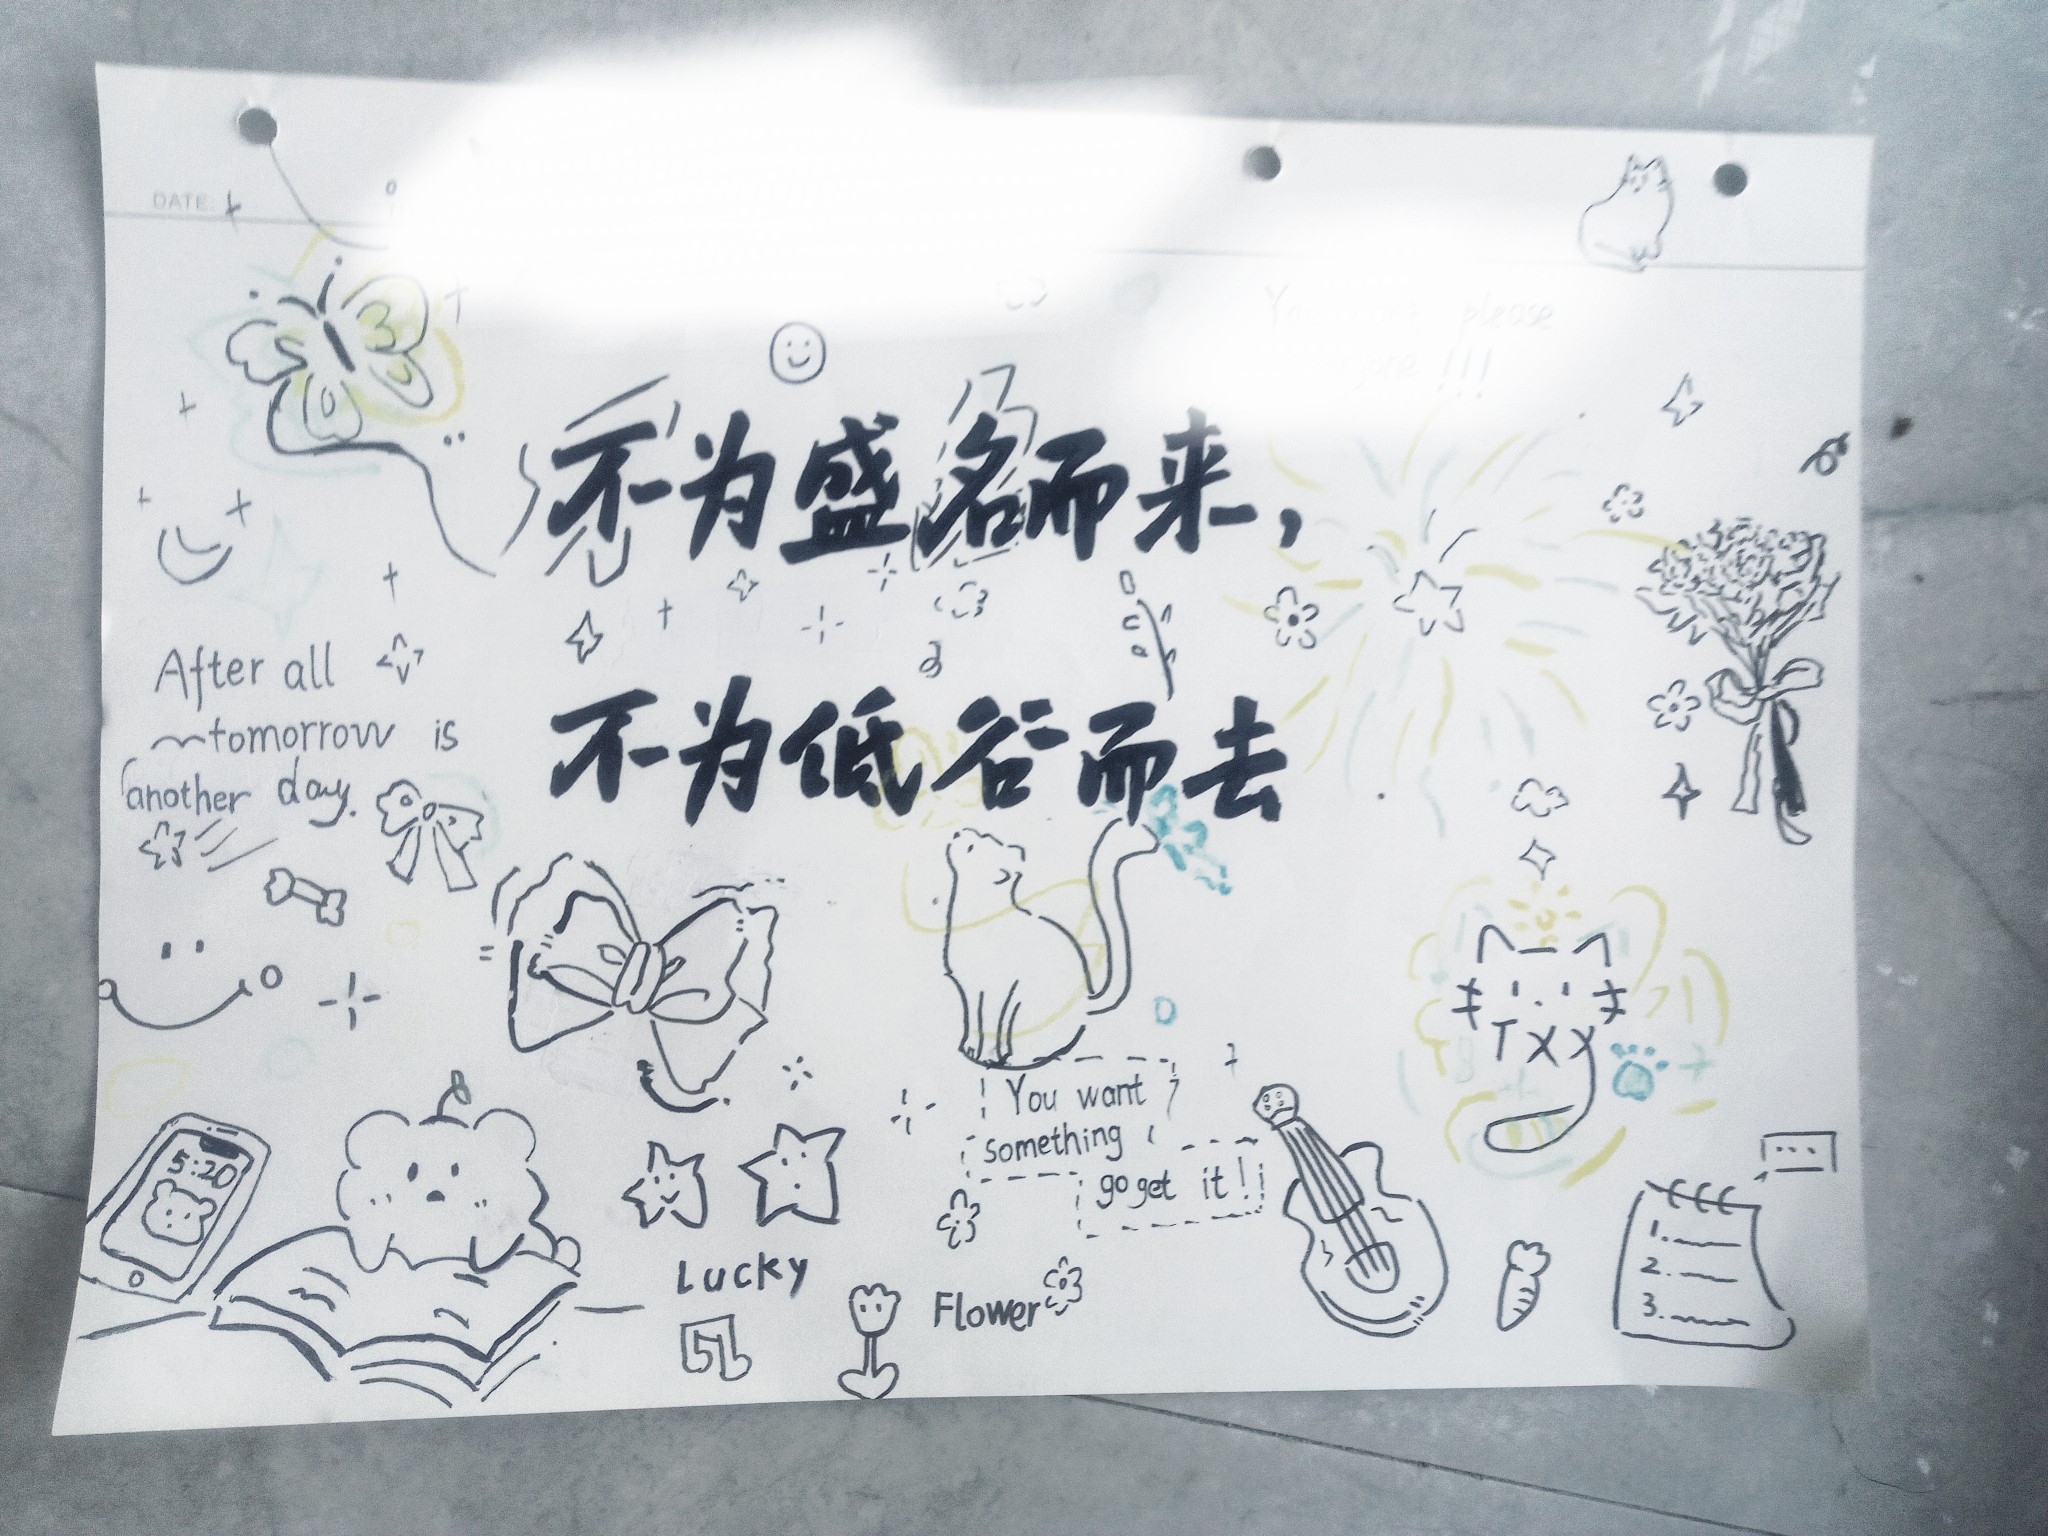 DATE:
please
!!!
不为盛名而来，
不为低谷而去
After all
tomorrow is
another day.
You want
something
go get it!!
TXX
5:20
Lucky
Flower
1.
2.
3.